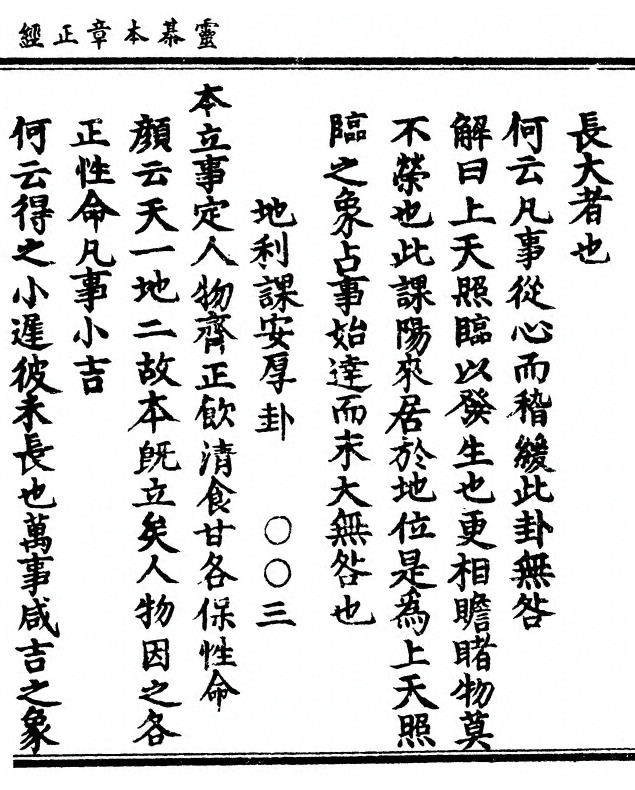 靈棊本章正經
長大者也
何云凡事從心而稽緩此卦無咎
解曰上天照臨以發生也更相瞻睹物莫
不榮也此課陽來居於地位是為上天照
臨之象占事始達而未大無咎也
地利課安厚卦 〇〇三
本立事定人物齊正飲清食甘各保性命
顏云天一地二故本既立矣人物因之各
正性命凡事小吉
何云得之小遲彼未長也萬事咸吉之象